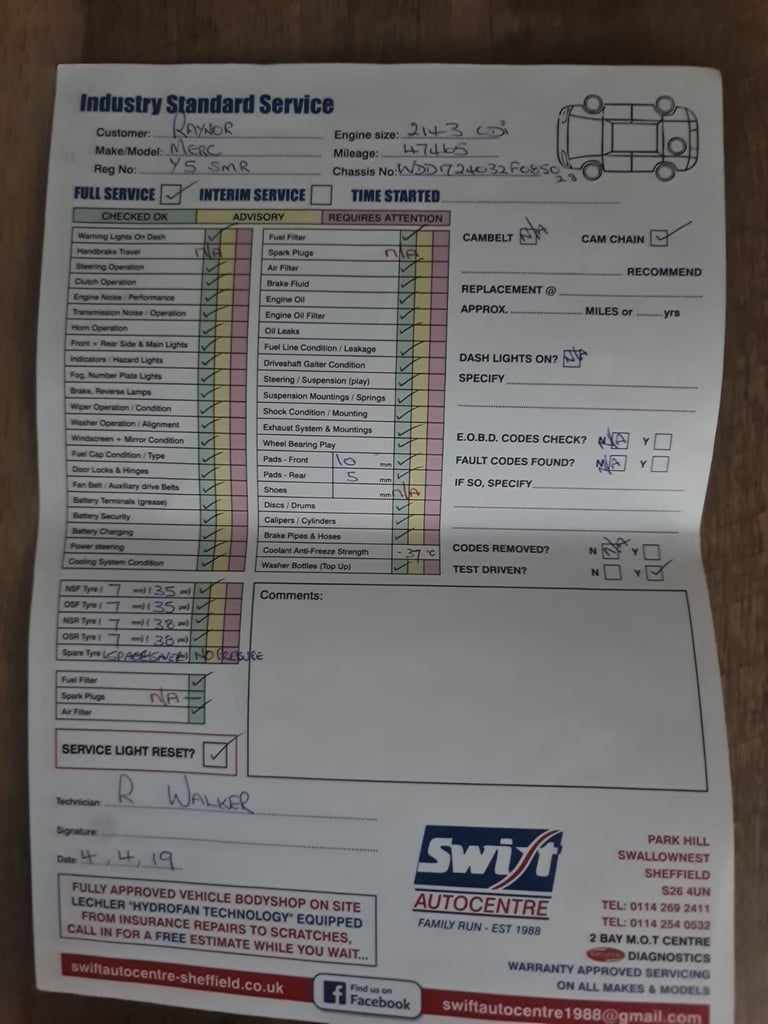 Industry Standard Service
Customer: RAYNOR
Engine size: 2143 CDi
Make/Model: MERC
Mileage: 47465
Reg No: Y5 SMR
Chassis No: WDD1724032F0850
28
FULL SERVICE INTERIM SERVICE TIME STARTED
CHECKED OK ADVISORY REQUIRES ATTENTION
Warning Lights On Dash
Handbrake Travel N/A
Steering Operation
Clutch Operation
Engine Noise / Performance
Transmission Noise / Operation
Horn Operation
Front + Rear Side & Main Lights
Indicators / Hazard Lights
Fog, Number Plate Lights
Brake, Reverse Lamps
Wiper Operation / Condition
Washer Operation / Alignment
Windscreen + Mirror Condition
Fuel Cap Condition / Type
Door Locks & Hinges
Fan Belt / Auxiliary drive Belts
Battery Terminals (grease)
Battery Security
Battery Charging
Power steering
Cooling System Condition
Fuel Filter
Spark Plugs n/A
Air Filter
Brake Fluid
Engine Oil
Engine Oil Filter
Oil Leaks
Fuel Line Condition / Leakage
Driveshaft Gaiter Condition
Steering / Suspension (play)
Suspension Mountings / Springs
Shock Condition / Mounting
Exhaust System & Mountings
Wheel Bearing Play
Pads - Front 10 mm
Pads - Rear 5 mm
Shoes mm n/A
Discs / Drums
Calipers / Cylinders
Brake Pipes & Hoses
Coolant Anti-Freeze Strength - 37 °C
Washer Bottles (Top Up)
CAMBELT N/A CAM CHAIN
RECOMMEND
REPLACEMENT @
APPROX. MILES or yrs
DASH LIGHTS ON? N/A
SPECIFY
E.O.B.D. CODES CHECK? N N/A Y
FAULT CODES FOUND? N N/A Y
IF SO, SPECIFY
CODES REMOVED? N N/A Y
TEST DRIVEN? N Y
NSF Tyre ( 7 mm) ( 35 psi)
OSF Tyre ( 7 mm) ( 35 psi)
NSR Tyre ( 7 mm) ( 38 psi)
OSR Tyre ( 7 mm) ( 38 psi)
Spare Tyre (SPACESAVER) NO PRESURE
Fuel Filter
Spark Plugs N/A
Air Filter
SERVICE LIGHT RESET?
Comments:
Technician: R. WALKER
Signature:
Date: 4, 4, 19
FULLY APPROVED VEHICLE BODYSHOP ON SITE
LECHLER "HYDROFAN TECHNOLOGY" EQUIPPED
FROM INSURANCE REPAIRS TO SCRATCHES,
CALL IN FOR A FREE ESTIMATE WHILE YOU WAIT...
Swift
AUTOCENTRE
FAMILY RUN - EST 1988
PARK HILL
SWALLOWNEST
SHEFFIELD
S26 4UN
TEL: 0114 269 2411
TEL: 0114 254 0532
2 BAY M.O.T CENTRE
DIAGNOSTICS
WARRANTY APPROVED SERVICING
ON ALL MAKES & MODELS
swiftautocentre-sheffield.co.uk
Find us on
Facebook
swiftautocentre1988@gmail.com